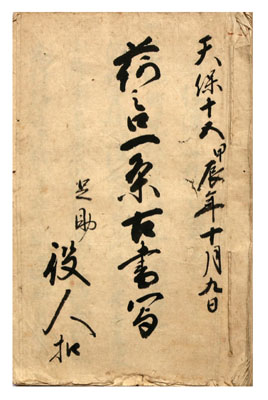 天保十五甲辰年十月九日
荷一条古書写
足助
役人扣